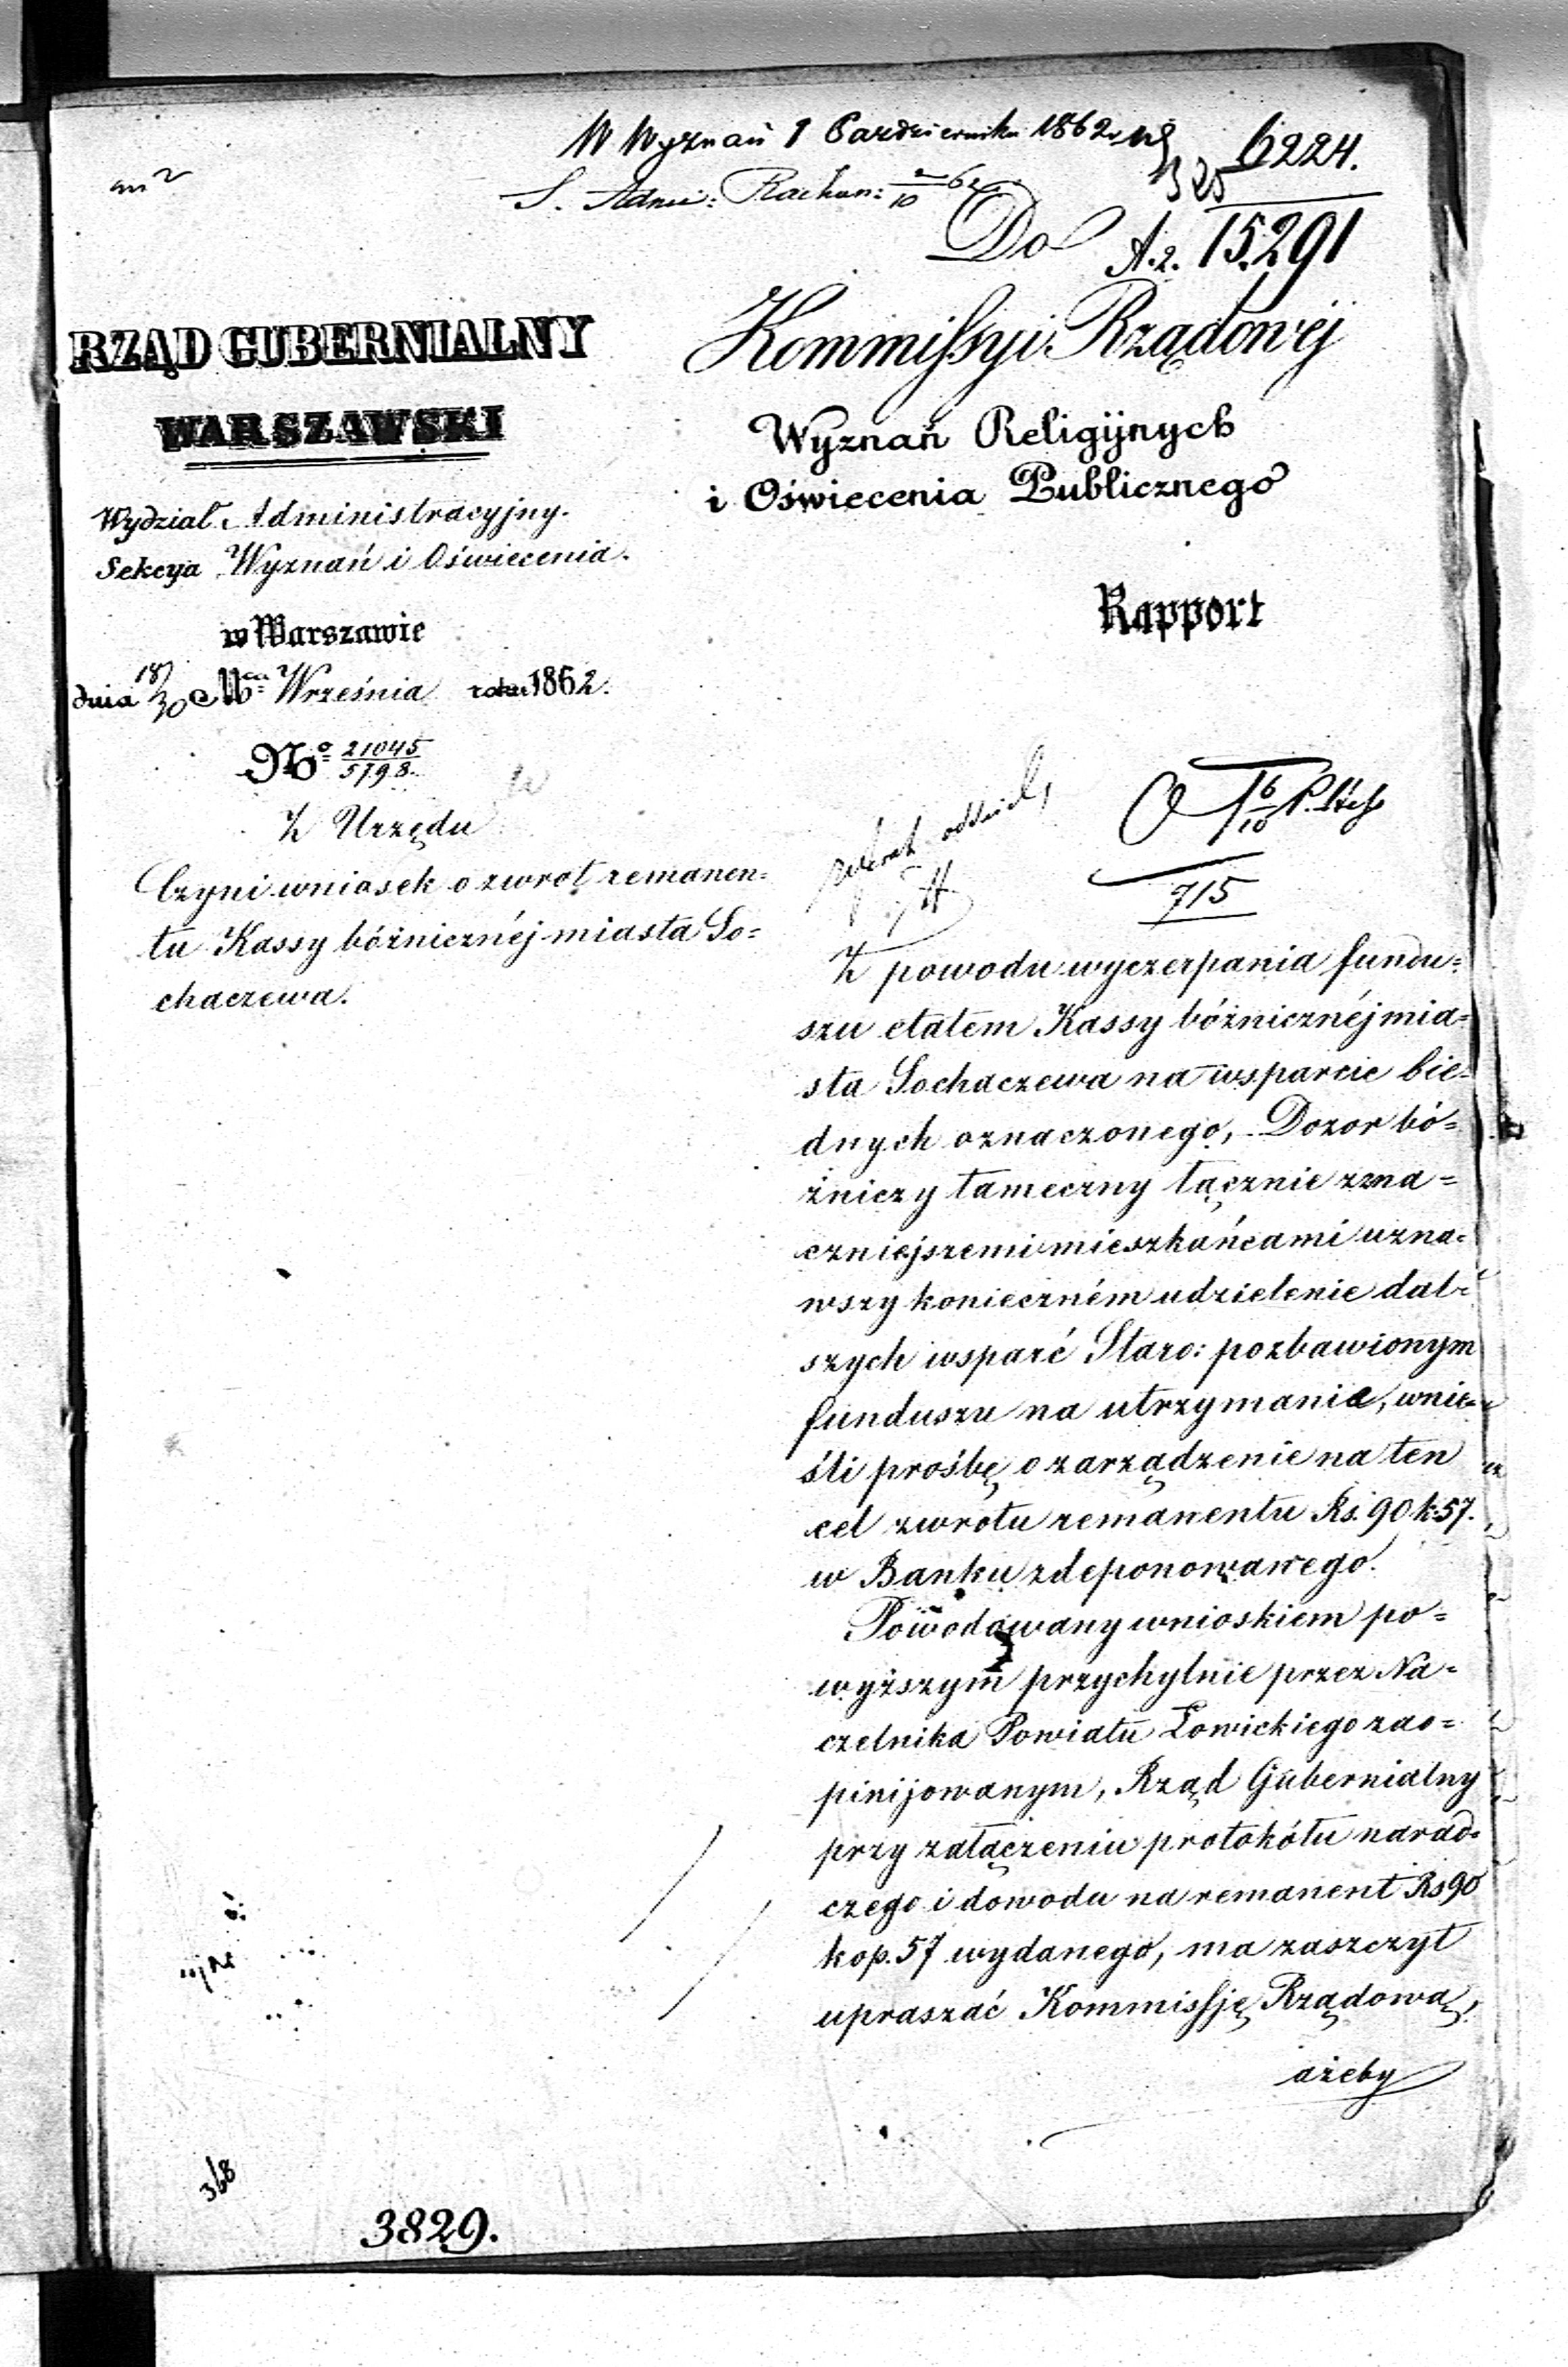 W Wyznań 1 Październiku 1862 r.
6224.
S. Admi: Rachun: 2/10 62
325
Do
A.2. 15291
Kommissyi Rządowéj
Wyznań Religijnych
i Oświecenia Publicznego
Rapport
RZĄD GUBERNIALNY
WARSZAWSKI
Wydział Administracyjny.
Sekcya Wyznań i Oświecenia.
w Warszawie
dnia 18/30 Mca Września roku 1862.
No 21045/5798.
Z Urzędu
Czyni wniosek o zwrot remanen=
tu Kassy bóżnicznéj miasta So=
chaczewa.
715
Z powodu wyczerpania fundu=
szu etatem Kassy bóżnicznéj mia=
sta Sochaczewa na wsparcie bie=
dnych oznaczonego, Dozor bó=
żniczy tameczny łącznie zzna=
czniejszemi mieszkańcami uzna=
wszy konieczném udzielenie dal=
szych wsparć Staro: pozbawionym
funduszu na utrzymanie, wnie=
śli prośbę o zarządzenie na ten
cel zwrotu remanentu Rs. 90 k. 57.
w Banku zdeponowanego.
Powodowany wnioskiem po=
wyższym przychylnie przez Na=
czelnika Powiatu Łowickiego zao=
pinijowanym, Rząd Gubernialny
przy załączeniu protokółu narad=
czego i dowodu na remanent Rs 90
kop. 57 wydanego, ma zaszczyt
upraszać Kommissję Rządową,
ażeby
368
3829.